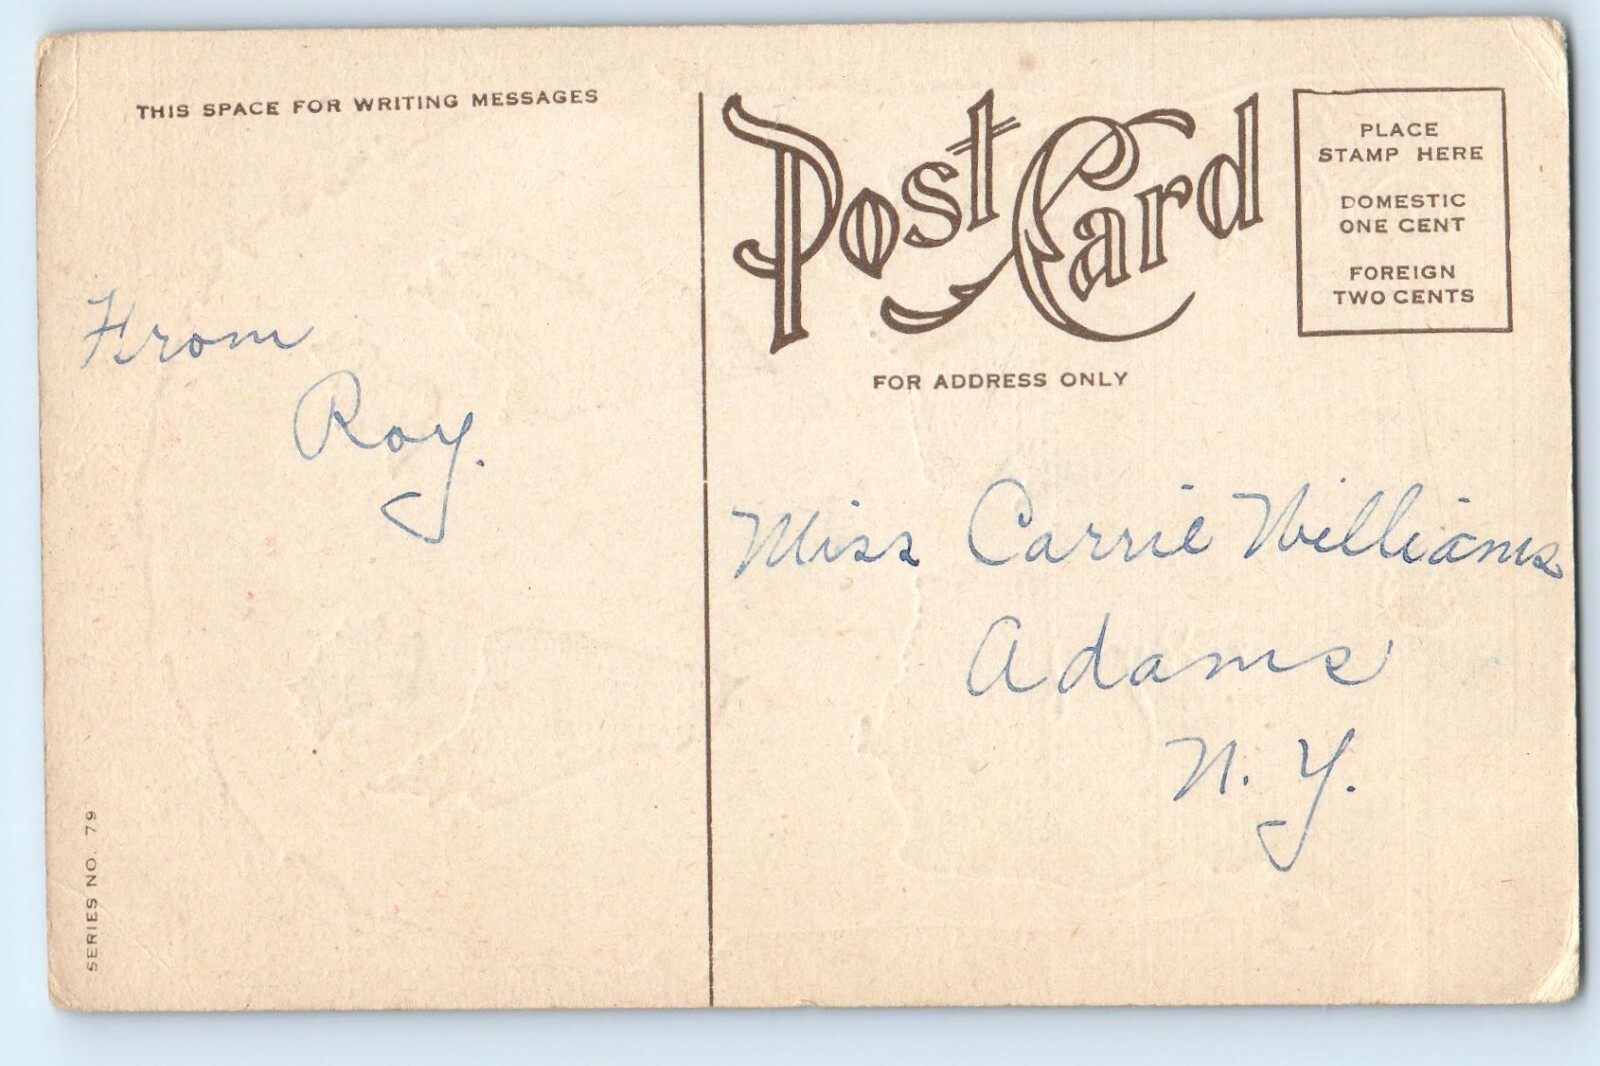 THIS SPACE FOR WRITING MESSAGES
From
Roy.
SERIES NO. 79
Post Card
FOR ADDRESS ONLY
PLACE
STAMP HERE
DOMESTIC
ONE CENT
FOREIGN
TWO CENTS
Miss Carrie Williams
Adams
N. Y.